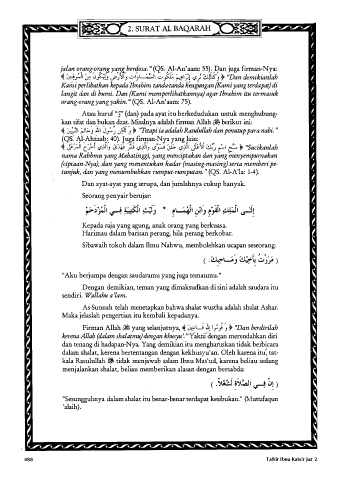 2. SURAT AL BAQARAH
jalan orang-orang yang berdosa." (QS. Al-An'aam: 55). Dan juga firman-Nya:
﴿ وَكَذَٰلِكَ نُرِي إِبْرَاهِيمَ مَلَكُوتَ السَّمَاوَاتِ وَالْأَرْضِ وَلِيَكُونَ مِنَ الْمُوقِنِينَ ﴾ "Dan demikianlah
Kami perlihatkan kepada Ibrahim tanda-tanda keagungan (Kami yang terdapat) di
langit dan di bumi. Dan (Kami memperlihatkannya) agar Ibrahim itu termasuk
orang-orang yang yakin." (QS. Al-An'aam: 75).
Atau huruf "و" (dan) pada ayat itu berkedudukan untuk menghubung-
kan sifat dan bukan dzat. Misalnya adalah firman Allah ﷻ berikut ini:
﴿ وَلَٰكِن رَّسُولَ اللهِ وَخَاتَمَ النَّبِيِّينَ ﴾ "Tetapi ia adalah Rasulullah dan penutup para nabi."
(QS. Al-Ahzaab: 40). Juga firman-Nya yang lain:
﴿ سَبِّحِ اسْمَ رَبِّكَ الْأَعْلَى الَّذِي خَلَقَ فَسَوَّى وَالَّذِي قَدَّرَ فَهَدَى وَالَّذِي أَخْرَجَ الْمَرْعَى ﴾ "Sucikanlah
nama Rabbmu yang Mahatinggi, yang menciptakan dan yang menyempurnakan
(ciptaan-Nya), dan yang menentukan kadar (masing-masing) serta memberi pe-
tunjuk, dan yang menumbuhkan rumput-rumputan." (QS. Al-A'la: 1-4).
Dan ayat-ayat yang serupa, dan jumlahnya cukup banyak.
Seorang penyair berujar:
إِلَى الْمَلِكِ الْقَوْمِ وَابْنِ الْهُمَامِ * وَلَيْثِ الْكَتِيبَةِ فِي الْمُزْدَحَمْ
Kepada raja yang agung, anak orang yang berkuasa.
Harimau dalam barisan perang, bila perang berkobar.
Sibawaih tokoh dalam Ilmu Nahwu, membolehkan ucapan seseorang:
( مَرَرْتُ بِأَخِيْكَ وَصَاحِبِكَ. )
"Aku berjumpa dengan saudaramu yang juga temanmu."
Dengan demikian, teman yang dimaksudkan di sini adalah saudara itu
sendiri. Wallahu a'lam.
As-Sunnah telah menetapkan bahwa shalat wustha adalah shalat Ashar.
Maka jelaslah pengertian itu kembali kepadanya.
Firman Allah ﷻ yang selanjutnya, ﴿ وَقُومُوا لِلَّهِ قَانِتِينَ ﴾ "Dan berdirilah
karena Allah (dalam shalatmu) dengan khusyu'." Yakni dengan merendahkan diri
dan tenang di hadapan-Nya. Yang demikian itu mengharuskan tidak berbicara
dalam shalat, karena bertentangan dengan kekhusyu'an. Oleh karena itu, tat-
kala Rasulullah ﷺ tidak menjawab salam Ibnu Mas'ud, karena beliau sedang
menjalankan shalat, beliau memberikan alasan dengan bersabda:
( إِنَّ فِي الصَّلَاةِ لَشُغْلًا. )
"Sesungguhnya dalam shalat itu benar-benar terdapat kesibukan." (Muttafaqun
'alaih).
688
Tafsir Ibnu Katsir Juz 2